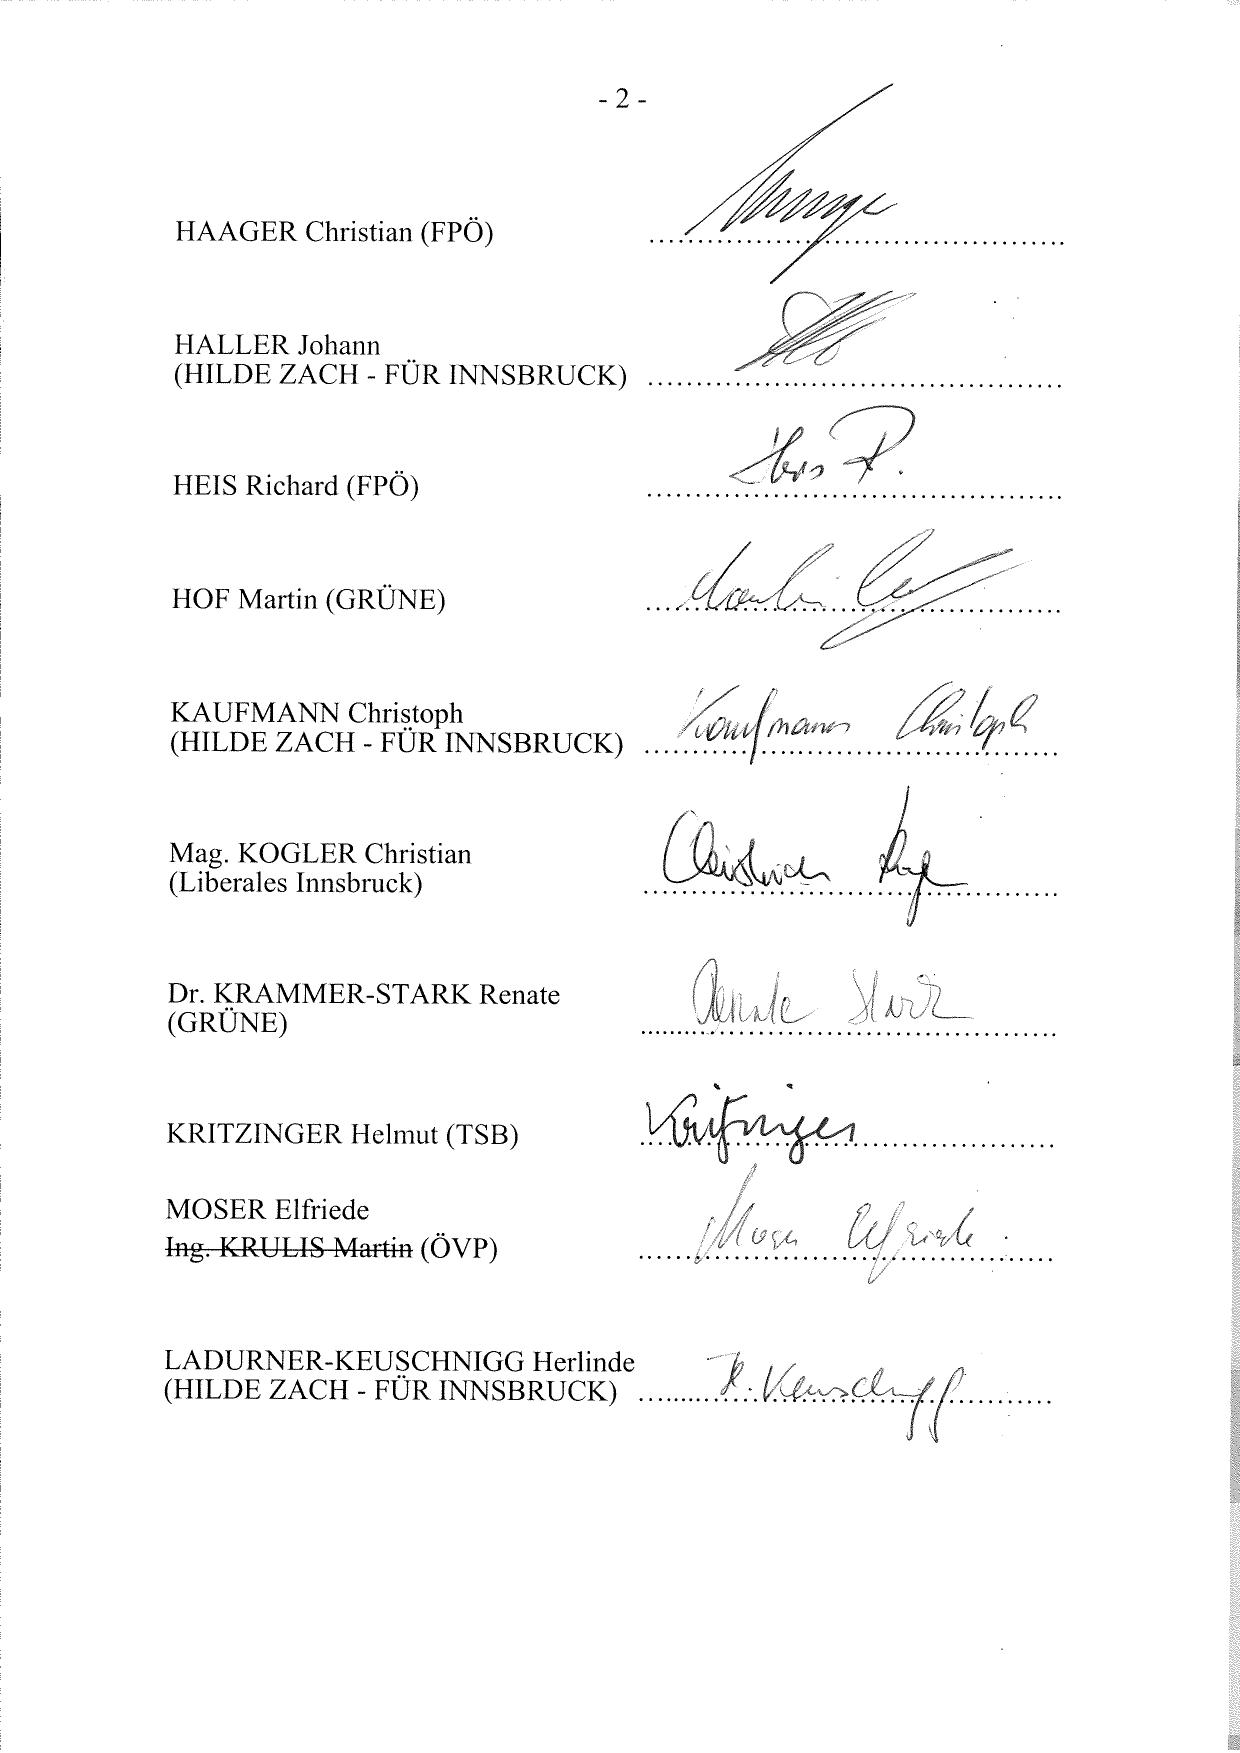 - 2 -
HAAGER Christian (FPÖ)
HALLER Johann
(HILDE ZACH - FÜR INNSBRUCK)
HEIS Richard (FPÖ)
Heis R.
HOF Martin (GRÜNE)
Martin
KAUFMANN Christoph
(HILDE ZACH - FÜR INNSBRUCK) Kaufmann Christoph
Mag. KOGLER Christian
(Liberales Innsbruck)
Christian
Dr. KRAMMER-STARK Renate
(GRÜNE)
Renate Stark
KRITZINGER Helmut (TSB) Kritzinger
MOSER Elfriede
Ing. KRULIS Martin (ÖVP) Moser Elfriede
LADURNER-KEUSCHNIGG Herlinde
(HILDE ZACH - FÜR INNSBRUCK) H. Keuschnigg